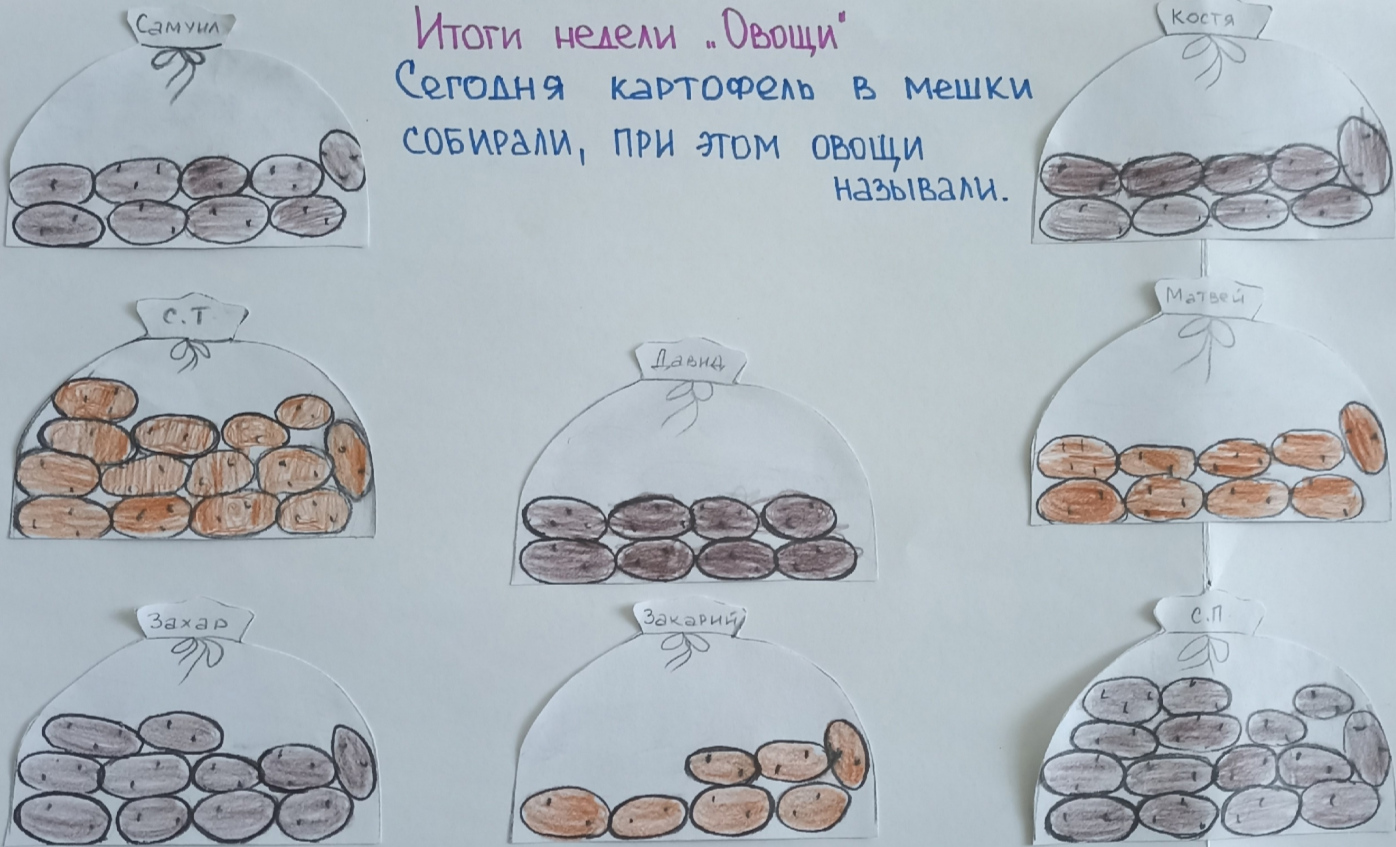 Итоги недели „Овощи"
Сегодня картофель в мешки
собирали, при этом овощи
называли.
Самуил
Костя
С.Т.
Давид
Матвей
Захар
Закарий
С.П